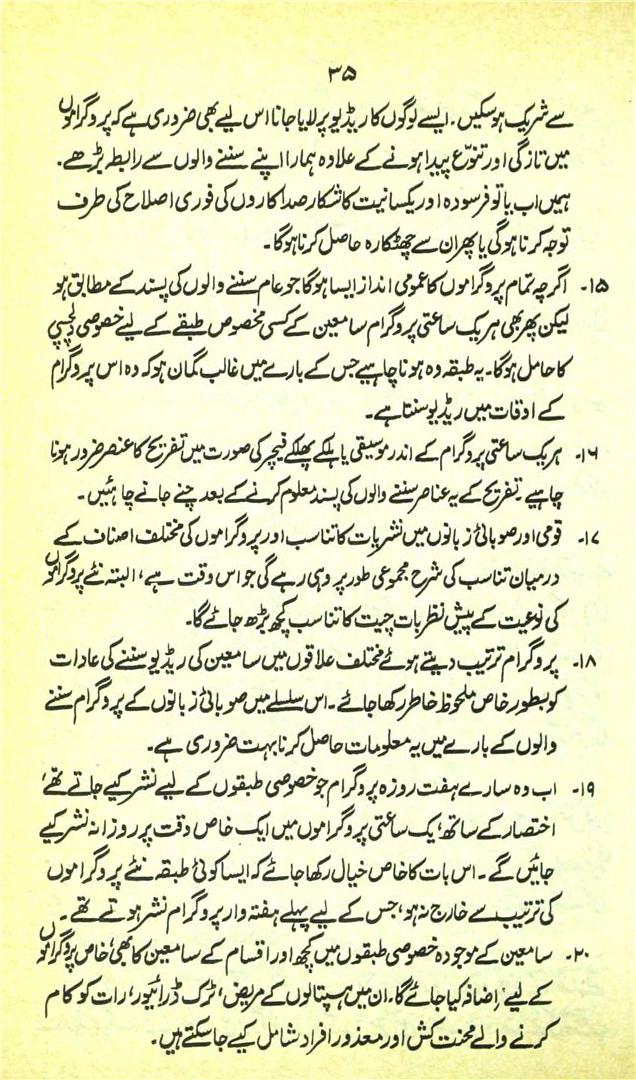 ۳۵
سے شریک ہو سکیں۔ ایسے لوگوں کا ریڈیو پر لایا جانا اس لیے بھی ضروری ہے کہ پروگراموں
میں تازگی اور تنوّع پیدا ہونے کے علاوہ ہمارا اپنے سننے والوں سے رابطہ بڑھے۔
ہمیں اب یا تو فرسودہ اور یکسانیت کا شکار صداکاروں کی فوری اصلاح کی طرف
توجہ کرنا ہوگی یا پھر ان سے چھٹکارہ حاصل کرنا ہوگا۔
۱۵۔ اگرچہ تمام پروگراموں کا عمومی انداز ایسا ہوگا جو عام سننے والوں کی پسند کے مطابق ہو
لیکن پھر بھی ہر یک ساعتی پروگرام سامعین کے کسی مخصوص طبقے کے لیے خصوصی دلچسپی
کا حامل ہوگا۔ یہ طبقہ وہ ہونا چاہیے جس کے بارے میں غالب گمان ہو کہ وہ اس پروگرام
کے اوقات میں ریڈیو سنتا ہے۔
۱۶۔ ہر یک ساعتی پروگرام کے اندر موسیقی یا ہلکے پھلکے فیچر کی صورت میں تفریح کا عنصر ضرور ہونا
چاہیے۔ تفریح کے یہ عناصر سننے والوں کی پسند معلوم کرنے کے بعد چنے جانے چاہئیں۔
۱۷۔ قومی اور صوبائی زبانوں میں نشریات کا تناسب اور پروگراموں کی مختلف اصناف کے
درمیان تناسب کی شرح مجموعی طور پر وہی رہے گی جو اس وقت ہے، البتہ نئے پروگراموں
کی نوعیت کے پیش نظر بات چیت کا تناسب کچھ بڑھ جائے گا۔
۱۸۔ پروگرام ترتیب دیتے ہوئے مختلف علاقوں میں سامعین کی ریڈیو سننے کی عادات
کو بطور خاص ملحوظ خاطر رکھا جائے۔ اس سلسلے میں صوبائی زبانوں کے پروگرام سننے
والوں کے بارے میں یہ معلومات حاصل کرنا بہت ضروری ہے۔
۱۹۔ اب وہ سارے ہفت روزہ پروگرام جو خصوصی طبقوں کے لیے نشر کیے جاتے تھے،
اختصار کے ساتھ، یک ساعتی پروگراموں میں ایک خاص وقت پر روزانہ نشر کیے
جائیں گے۔ اس بات کا خاص خیال رکھا جائے کہ ایسا کوئی طبقہ نئے پروگراموں
کی ترتیب سے خارج نہ ہو، جس کے لیے پہلے ہفتہ وار پروگرام نشر ہوتے تھے۔
۲۰۔ سامعین کے موجودہ خصوصی طبقوں میں کچھ اور اقسام کے سامعین کا بھی، خاص پروگراموں
کے لیے، اضافہ کیا جائے گا۔ ان میں ہسپتالوں کے مریض، ٹرک ڈرائیور، رات کو کام
کرنے والے محنت کش اور معذور افراد شامل کیے جا سکتے ہیں۔